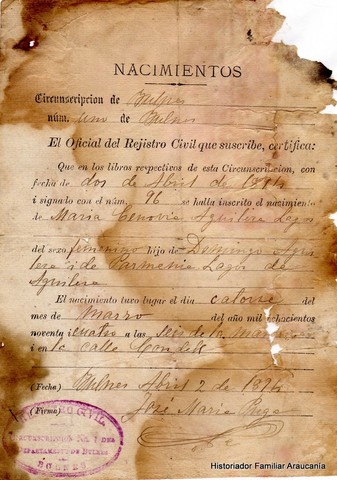 NACIMIENTOS
Circunscripcion de Bulnes
núm. uno de Bulnes
El Oficial del Rejistro Civil que suscribe, certifica:
Que en los libros respectivos de esta Circunscripcion, con
fecha de dos de Abril de 1894
i signado con el núm. 96 se halla inscrito el nacimiento
de Maria Cenovia Aguilera Lagos
del sexo femenino hijo de Domingo Agui
lera i de Parmenia Lagos de
Aguilera
El nacimiento tuvo lugar el dia catorce del
mes de Marzo del año mil ochocientos
noventa i cuatro a las seis de la mañana
i en la calle Condell
(Fecha) Bulnes Abril 2 de 1894
(Firma) José Maria Puga
CIVIL
CIRCUNSCRIPCION No. 1 DEL
DEPARTAMENTO DE BULNES
BULNES
Historiador Familiar Araucanía